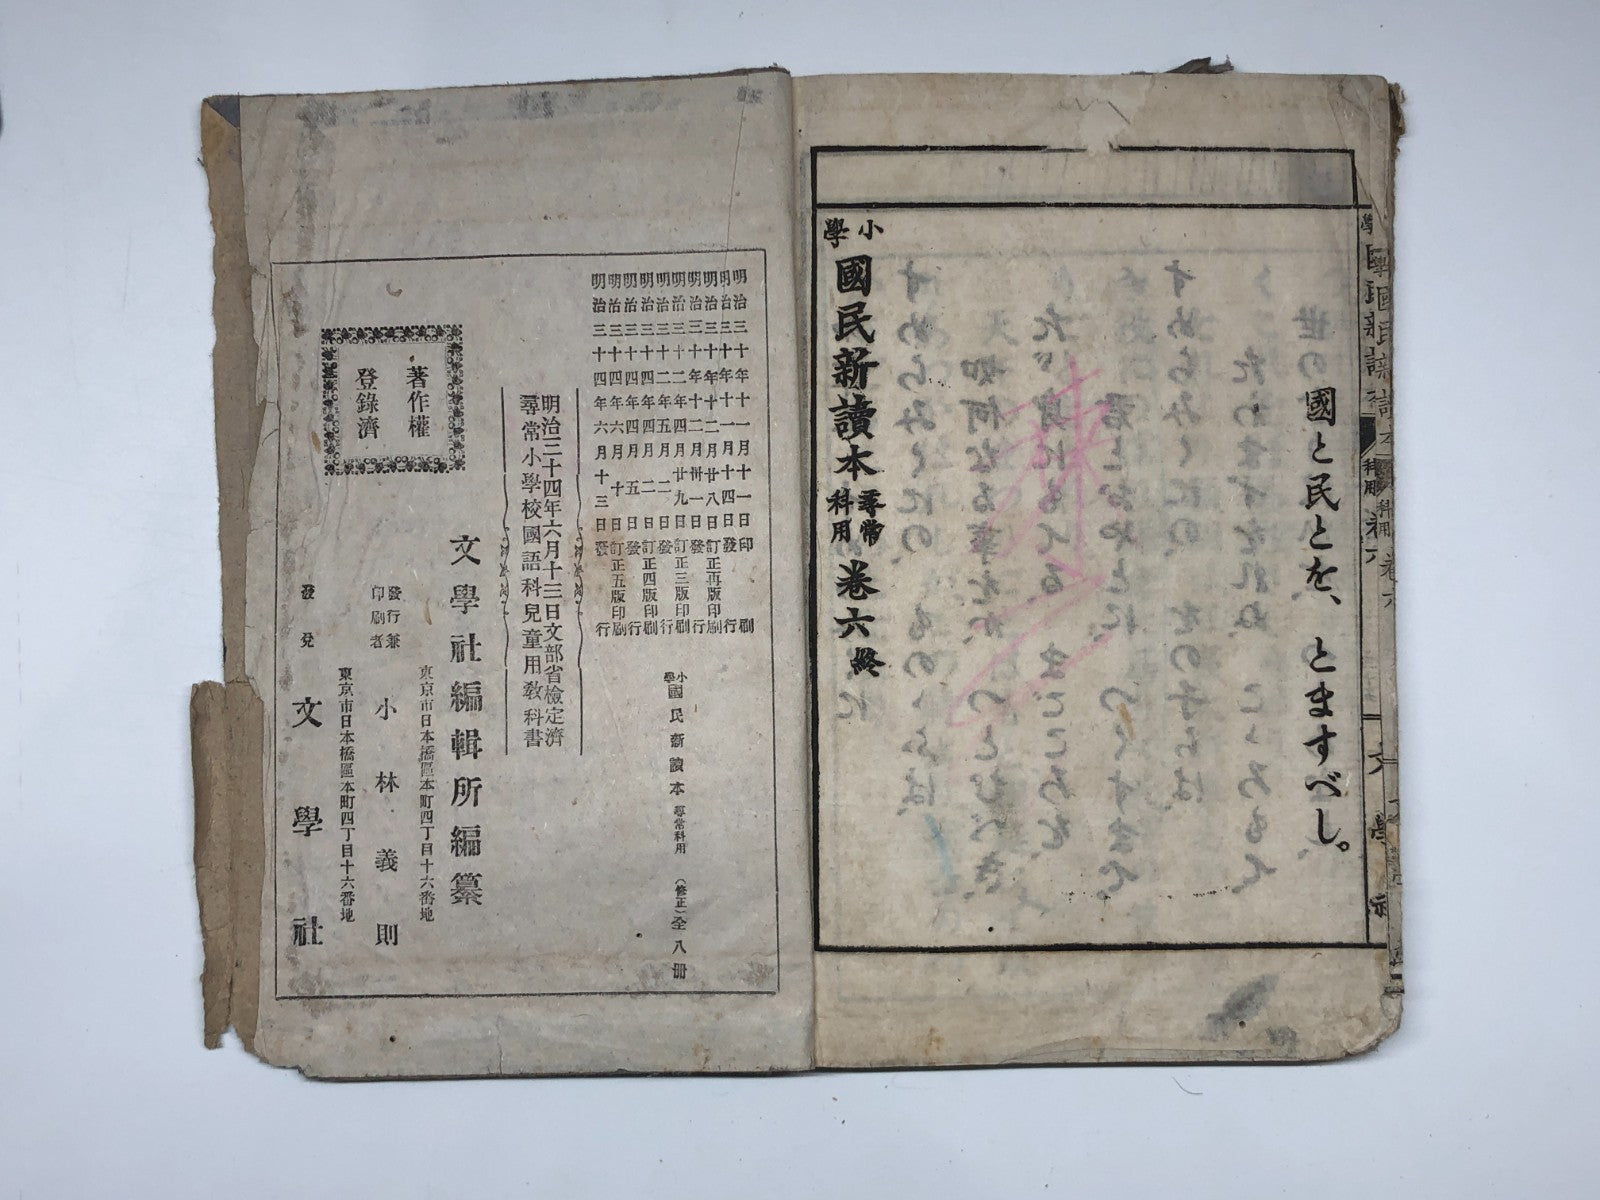 國と民とを、とますべし。
小學國民新讀本尋常科用卷六終
明治三十年十一月十一日印刷
明治三十年十一月十四日發行
明治三十年十二月廿八日訂正再版印刷
明治三十年十二月卅一日發行
明治三十二年四月廿九日訂正三版印刷
明治三十二年五月二日發行
明治三十四年四月二日訂正四版印刷
明治三十四年四月五日發行
明治三十四年六月十日訂正五版印刷
明治三十四年六月十三日發行
小學國民新讀本尋常科用(修正)全八册
明治三十四年六月十三日文部省檢定濟
尋常小學校國語科兒童用敎科書
文學社編輯所編纂
東京市日本橋區本町四丁目十六番地
發行兼
印刷者
小林義則
東京市日本橋區本町四丁目十六番地
發兌
文學社
著作權
登錄濟